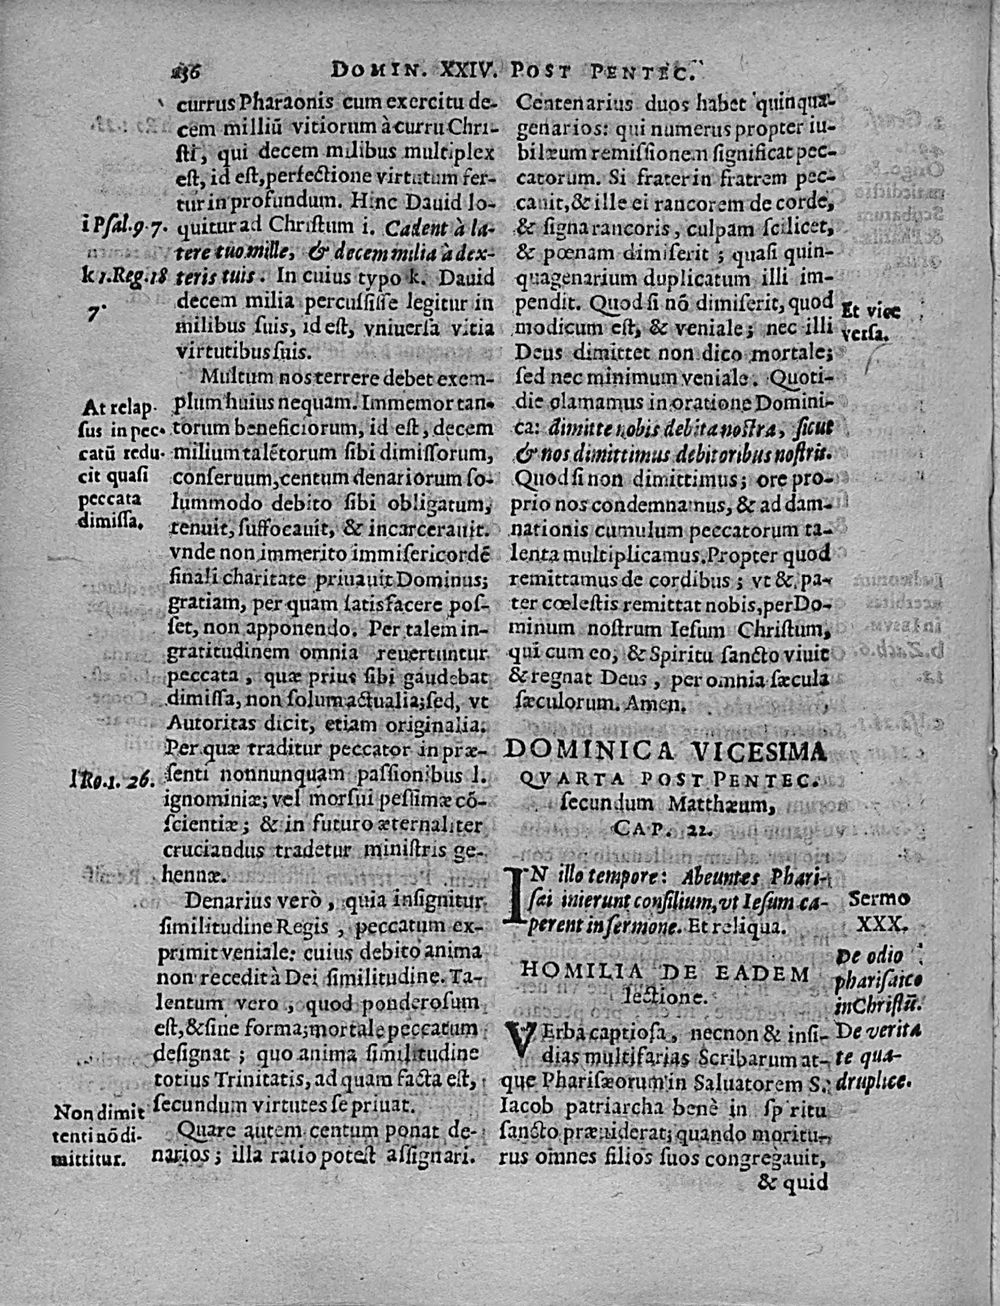 136 DOMIN. XXIV. POST PENTEC.
currus Pharaonis cum exercitu de-
cem milliū vitiorum à curru Chri-
sti, qui decem milibus multiplex
est, id est, perfectione virtutum fer-
tur in profundum. Hinc Dauid lo-
i Psal. 9. 7.
quitur ad Christum i. Cadent à la-
tere tuo mille, & decem milia à dex-
k 1. Reg. 18
7.
teris tuis. In cuius typo k. Dauid
decem milia percussisse legitur in
milibus suis, id est, vniuersa vitia
virtutibus suis.
Multum nos terrere debet exem-
At relap-
sus in pec-
catū redu-
cit quasi
peccata
dimissa.
plum huius nequam. Immemor tan-
torum beneficiorum, id est, decem
milium talētorum sibi dimissorum,
conseruum, centum denariorum so-
lummodo debito sibi obligatum,
tenuit, suffocauit, & incarcerauit.
vnde non immerito immisericordē
finali charitate priuauit Dominus;
gratiam, per quam satisfacere pos-
set, non apponendo. Per talem in-
gratitudinem omnia reuertuntur
peccata, quæ prius sibi gaudebat
dimissa, non solum actualia; sed, vt
Autoritas dicit, etiam originalia.
Per quæ traditur peccator in præ-
l Ro. 1. 26.
senti nonnunquam passionibus l.
ignominiæ; vel morsui pessimæ cō-
scientiæ; & in futuro æternaliter
cruciandus tradetur ministris ge-
hennæ.
Denarius verò, quia insignitur
similitudine Regis, peccatum ex-
primit veniale: cuius debito anima
non recedit à Dei similitudine. Ta-
lentum vero, quod ponderosum
est, & sine forma; mortale peccatum
designat; quo anima similitudine
totius Trinitatis, ad quam facta est,
secundum virtutes se priuat.
Non dimit
tenti nō di-
mittitur.
Quare autem centum ponat de-
narios; illa ratio potest assignari.
Centenarius duos habet quinqua-
genarios: qui numerus propter iu-
bilæum remissionem significat pec-
catorum. Si frater in fratrem pec-
cauit, & ille ei rancorem de corde,
& signa rancoris, culpam scilicet,
& pœnam dimiserit; quasi quin-
quagenarium duplicatum illi im-
pendit. Quod si nō dimiserit, quod
Et vice
versa.
modicum est, & veniale; nec illi
Deus dimittet non dico mortale;
sed nec minimum veniale. Quoti-
die clamamus in oratione Domini-
ca: dimitte nobis debita nostra, sicut
& nos dimittimus debitoribus nostris.
Quod si non dimittimus; ore pro-
prio nos condemnamus, & ad dam-
nationis cumulum peccatorum ta-
lenta multiplicamus. Propter quod
remittamus de cordibus; vt & pa-
ter cœlestis remittat nobis, per Do-
minum nostrum Iesum Christum,
qui cum eo, & Spiritu sancto viuit
& regnat Deus, per omnia sæcula
sæculorum. Amen.
DOMINICA VICESIMA
QVARTA POST PENTEC.
secundum Matthæum,
CAP. 22.
IN illo tempore: Abeuntes Phari-
sæi inierunt consilium, vt Iesum ca-
perent in sermone. Et reliqua.
Sermo
XXX.
HOMILIA DE EADEM
lectione.
De odio
pharisaico
in Christū.
De verita
te qua-
druplice.
VErba captiosa, necnon & insi-
dias multifarias Scribarum at-
que Pharisæorum in Saluatorem S.
Iacob patriarcha benè in spiritu
sancto præuiderat; quando moritu-
rus omnes filios suos congregauit,
& quid